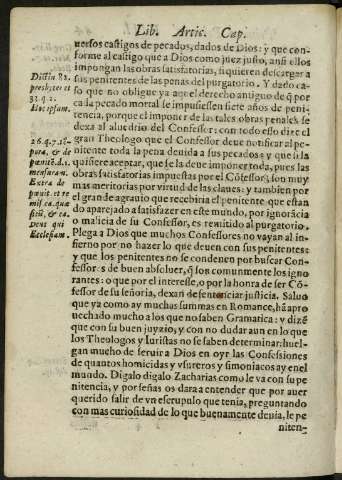 Lib. Artic. Cap.
uersos castigos de pecados, dados de Dios: y que con-
forme al castigo que a Dios como juez justo, ansi ellos
impongan las obras satisfatorias, si quieren descargar a
sus penitentes de las penas del purgatorio. Y dado ca-
so que no obligue ya aq̃l derecho antiguo de q̃ por
cada pecado mortal se impusiessen siete años de peni-
tencia, porque el imponer de las tales obras penales se
dexa al aluedrio del Confessor: con todo esso dize el
gran Theologo que el Confessor deue notificar al pe-
nitente toda la pena deuida a sus pecados: y que si la
quisiere aceptar, que se la deue imponer toda, pues las
obras satisfatorias impuestas por el Cõfessor, son muy
mas meritorias por virtud de las claues: y tambien por
el grande agrauio que recebiria el penitente que estan
do aparejado a satisfazer en este mundo, por ignorãcia
o malicia de su Confessor, es remitido al purgatorio.
Plega a Dios que muchos Confessores no vayan al in-
fierno por no hazer lo que deuen con sus penitentes:
y que los penitentes no se condenen por buscar Con-
fessores de buen absoluer, q̃ son comunmente los igno
rantes: o que por el interesse, o por la honra de ser Cõ-
fessor de su señoria, dexan de sentenciar justicia. Saluo
que ya como ay muchas summas en Romance, hã apro
uechado mucho a los que no saben Gramatica: y dizẽ
que con su buen juyzio, y con no dudar aun en lo que
los Theologos y Iuristas no se saben determinar: huel-
gan mucho de seruir a Dios en oyr las Confessiones
de quantos homicidas y vsureros y simoniacos ay en el
mundo. Digalo digalo Zacharias como le va con su pe
nitencia, y por señas os dara a entender que por auer
querido salir de vn escrupulo que tenia, preguntando
con mas curiosidad de lo que buenamente deuia, le pe
niten-
Distin 82.
presbyter et
33. q. 2.
Hoc ipsum.
26. q. 7. tẽ-
pora, & de
pœnit. d. 1.
mensuram.
Extra de
pœnit. et re
mis. ca. quæ
sitũ, & ca.
Deus qui
Ecclesiam.